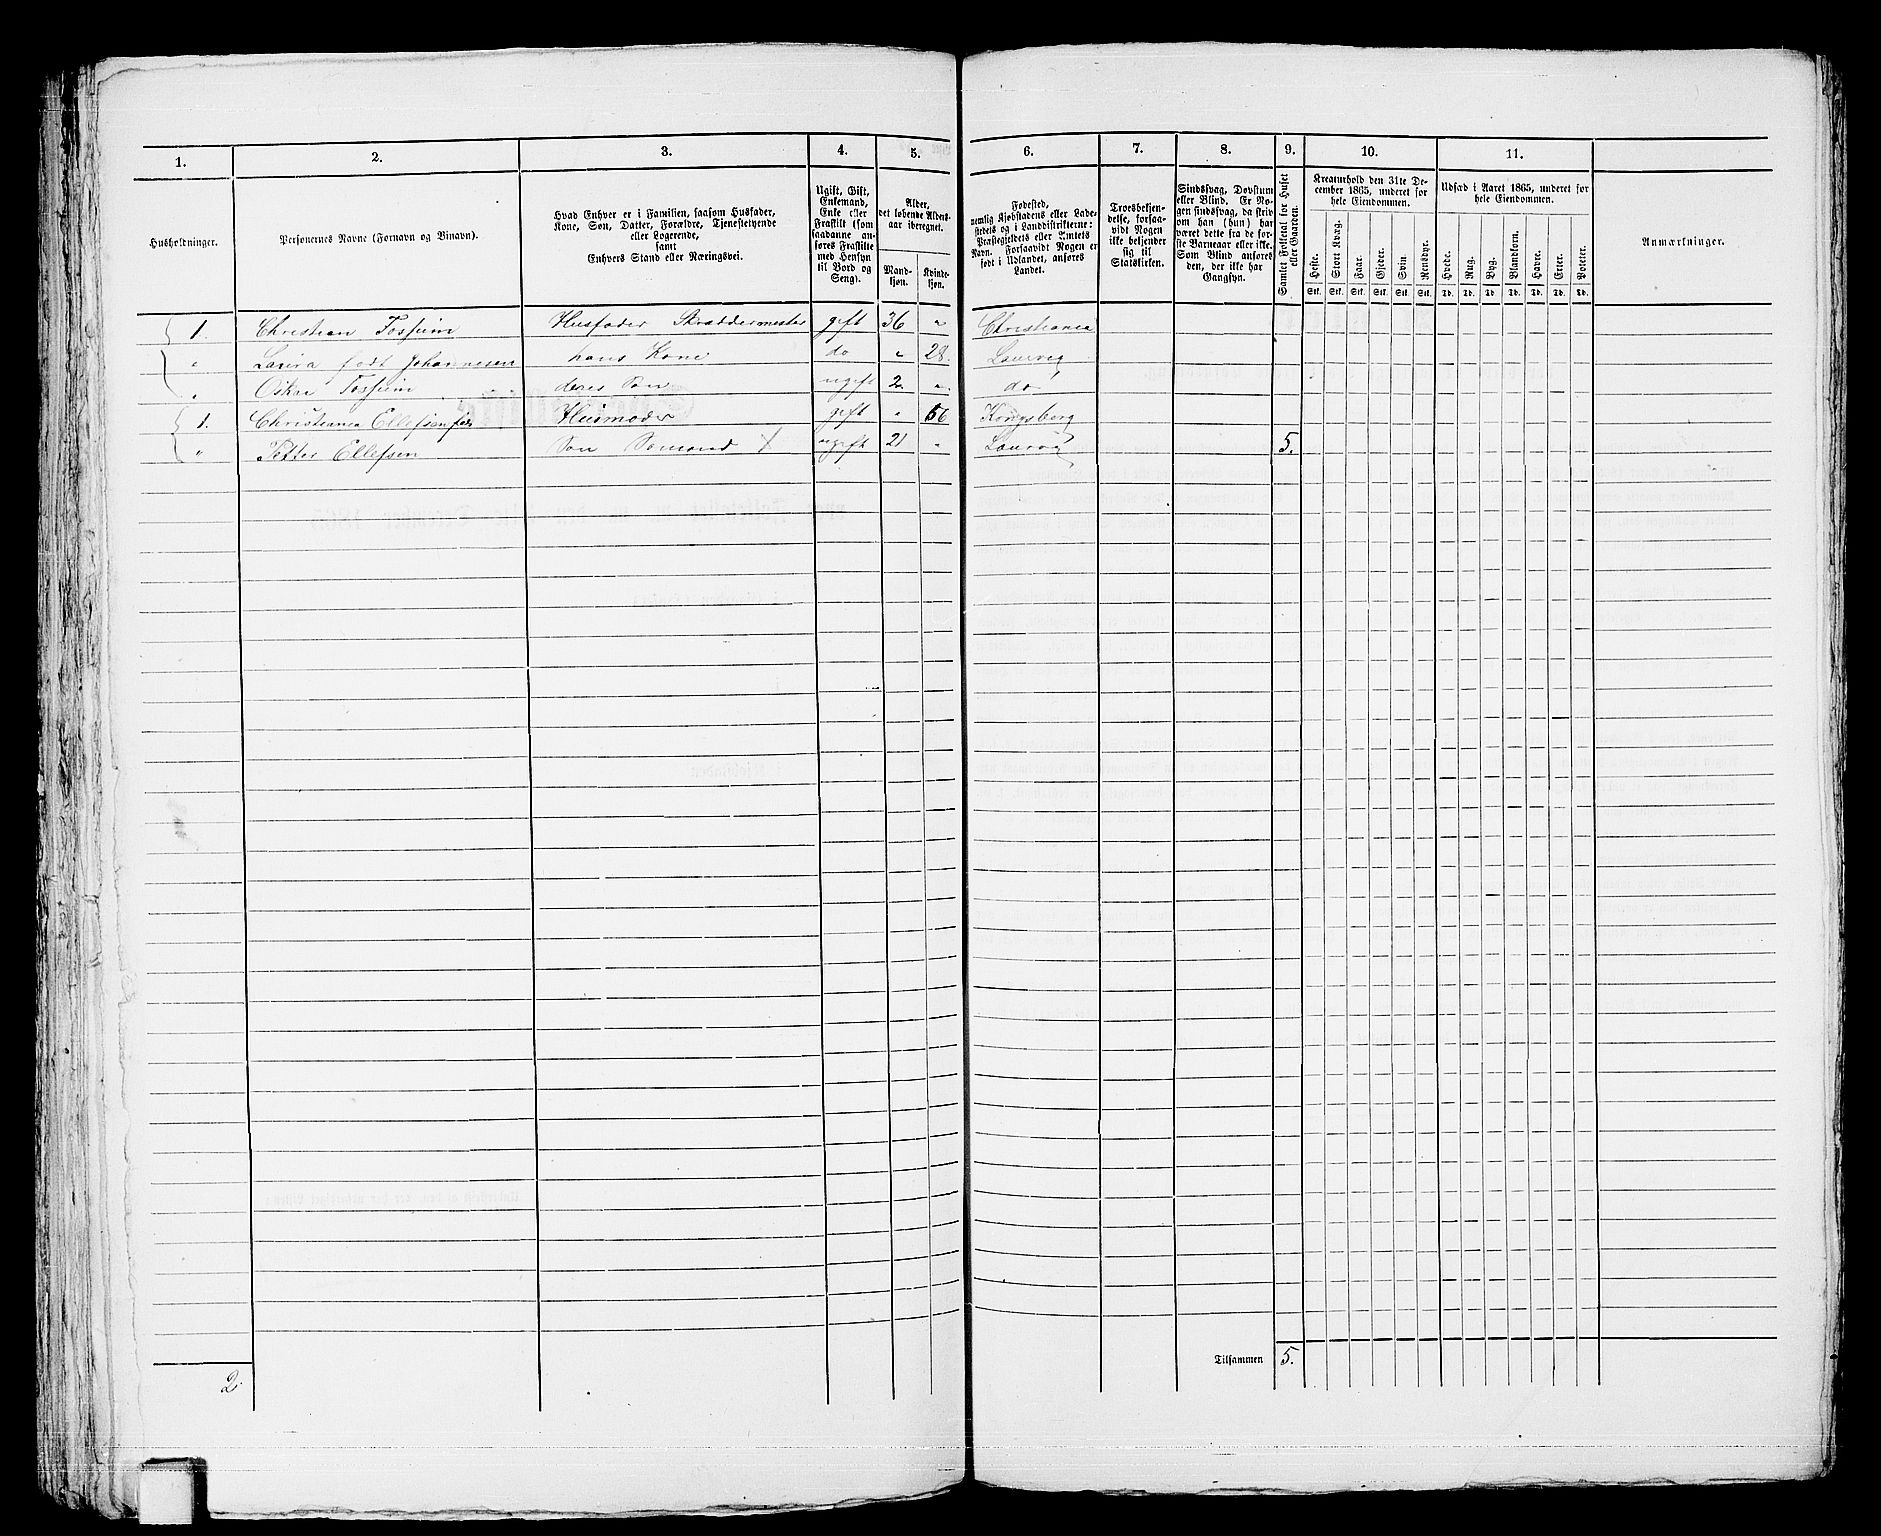 1. 2. 3. 4. 5. 6. 7. 8. 9. 10. 11.
Husholdninger.
Personernes Navne (Fornavn og Binavn).
Hvad Enhver er i Familien, saasom Husfader,
Kone, Søn, Datter, Forældre, Tjenestetyende
eller Logerende,
samt
Enhvers Stand eller Næringsvei.
Ugift, Gift,
Enkemand,
Enke eller
Fraskilt (som
saadanne an-
føres Fraskilte
med Hensyn
til Bord og
Seng).
Alder,
det løbende Alders-
aar iberegnet.
Mand-
kjøn.
Kvinde-
kjøn.
Fødested,
nemlig Kjøbstadens eller Lade-
stedets og i Landdistrikterne:
Præstegjeldets eller Amtets
Navn. Forsaavidt Nogen er
født i Udlandet, anføres
Landet.
Troesbekjen-
delse, forsaa-
vidt Nogen
ikke bekjender
sig til
Statskirken.
Sindssvag, Døvstum
eller Blind. Er No-
gen sindssvag, da skriv
om han (hun) har
været dette fra de før-
ste Barneaar eller ikke.
Som Blind anføres
den, der ikke har
Gangsyn.
Samlet Folketal for Huset
eller Gaarden.
Kreaturhold den 31te De-
cember 1865, underet for
hele Eiendommen.
Heste. Stort Kvæg. Faar. Gjeder. Svin. Rensdyr.
Stk. Stk. Stk. Stk. Stk. Stk.
Udsæd i Aaret 1865, underet for
hele Eiendommen.
Hvede. Rug. Byg. Blandkorn. Havre. Erter. Poteter.
Td. Td. Td. Td. Td. Td. Td.
Anmærkninger.
1. Christian Fossum Husfader Skræddermester gift 36 " Christiania
" Laura født Johannesen hans Kone do " 28. Laurvig
" Oskar Fossum deres Søn ugift 2 " do
1. Christiania Ellefsen Husmoder gift " 56 Kongsberg
" Petter Ellefsen Søn Sømand X ugift 21 " Laurvig 5.
Tilsammen 5.
2.